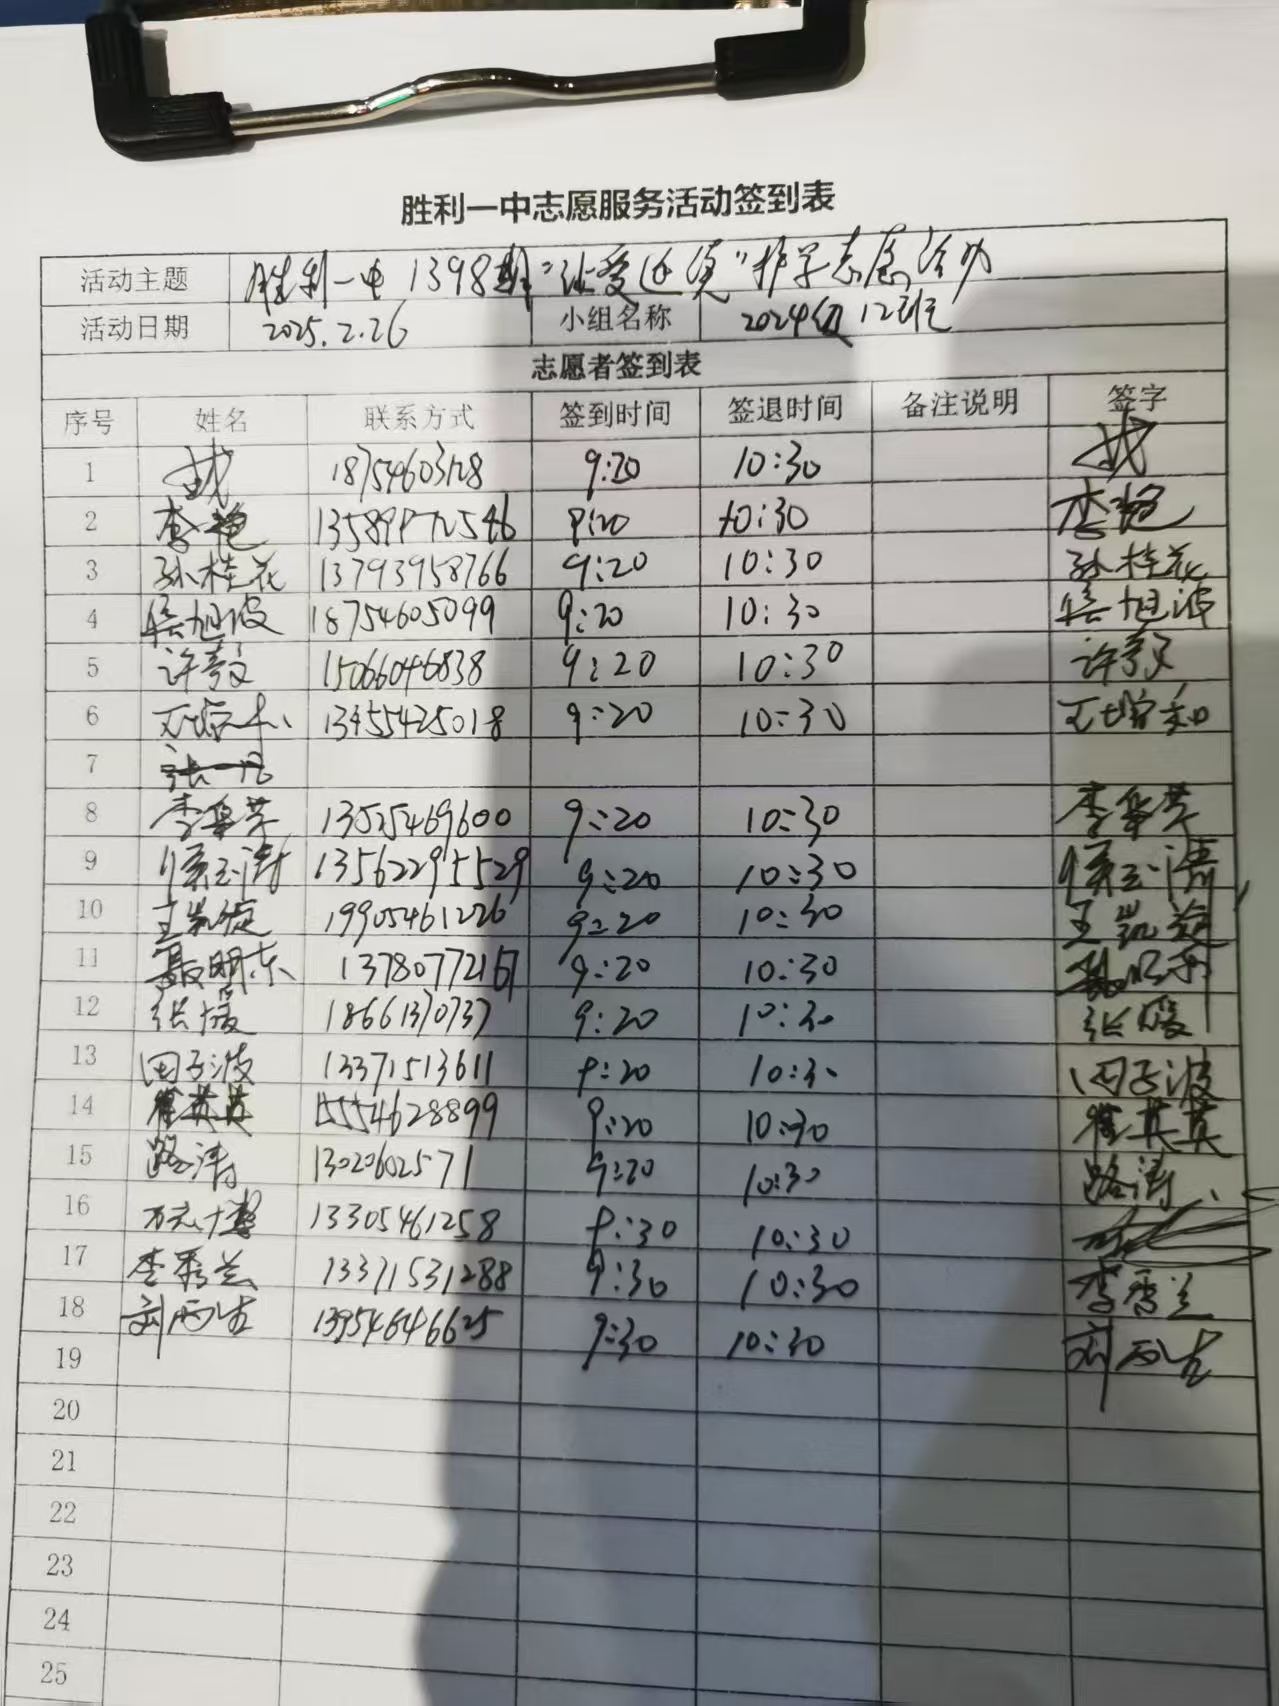 胜利一中志愿服务活动签到表
活动主题 胜利一中1398期“让爱 ”护学志愿活动
活动日期 2025.2.26 小组名称 2024级12班
志愿者签到表
序号 姓名 联系方式 签到时间 签退时间 备注说明 签字
1 18754603128 9:20 10:30
2 李艳 9:20 10:30 李艳
3 孙桂花 13793958766 9:20 10:30 孙桂花
4 旭波 18754605099 9:20 10:30 旭波
5 许 文 15066046838 9:20 10:30 许 文
6 13455425018 9:20 10:30
7 张一凡
8 李翠芹 13525469600 9:20 10:30 李翠芹
9 侯玉涛 13562295529 9:20 10:30 侯玉涛
10 王凯旋 19905461226 9:20 10:30 王凯旋
11 聂明东 9:20 10:30
12 张媛 18661370737 9:20 10:30 张媛
13 田子波 13371513611 9:20 10:30 田子波
14 崔英英 15554628899 9:20 10:30 崔英英
15 路涛 13020602571 9:20 10:30 路涛
16 13305461258 9:30 10:30
17 李秀兰 13371531288 9:30 10:30 李秀兰
18 刘丙吉 13954646625 9:30 10:30 刘丙吉
19
20
21
22
23
24
25